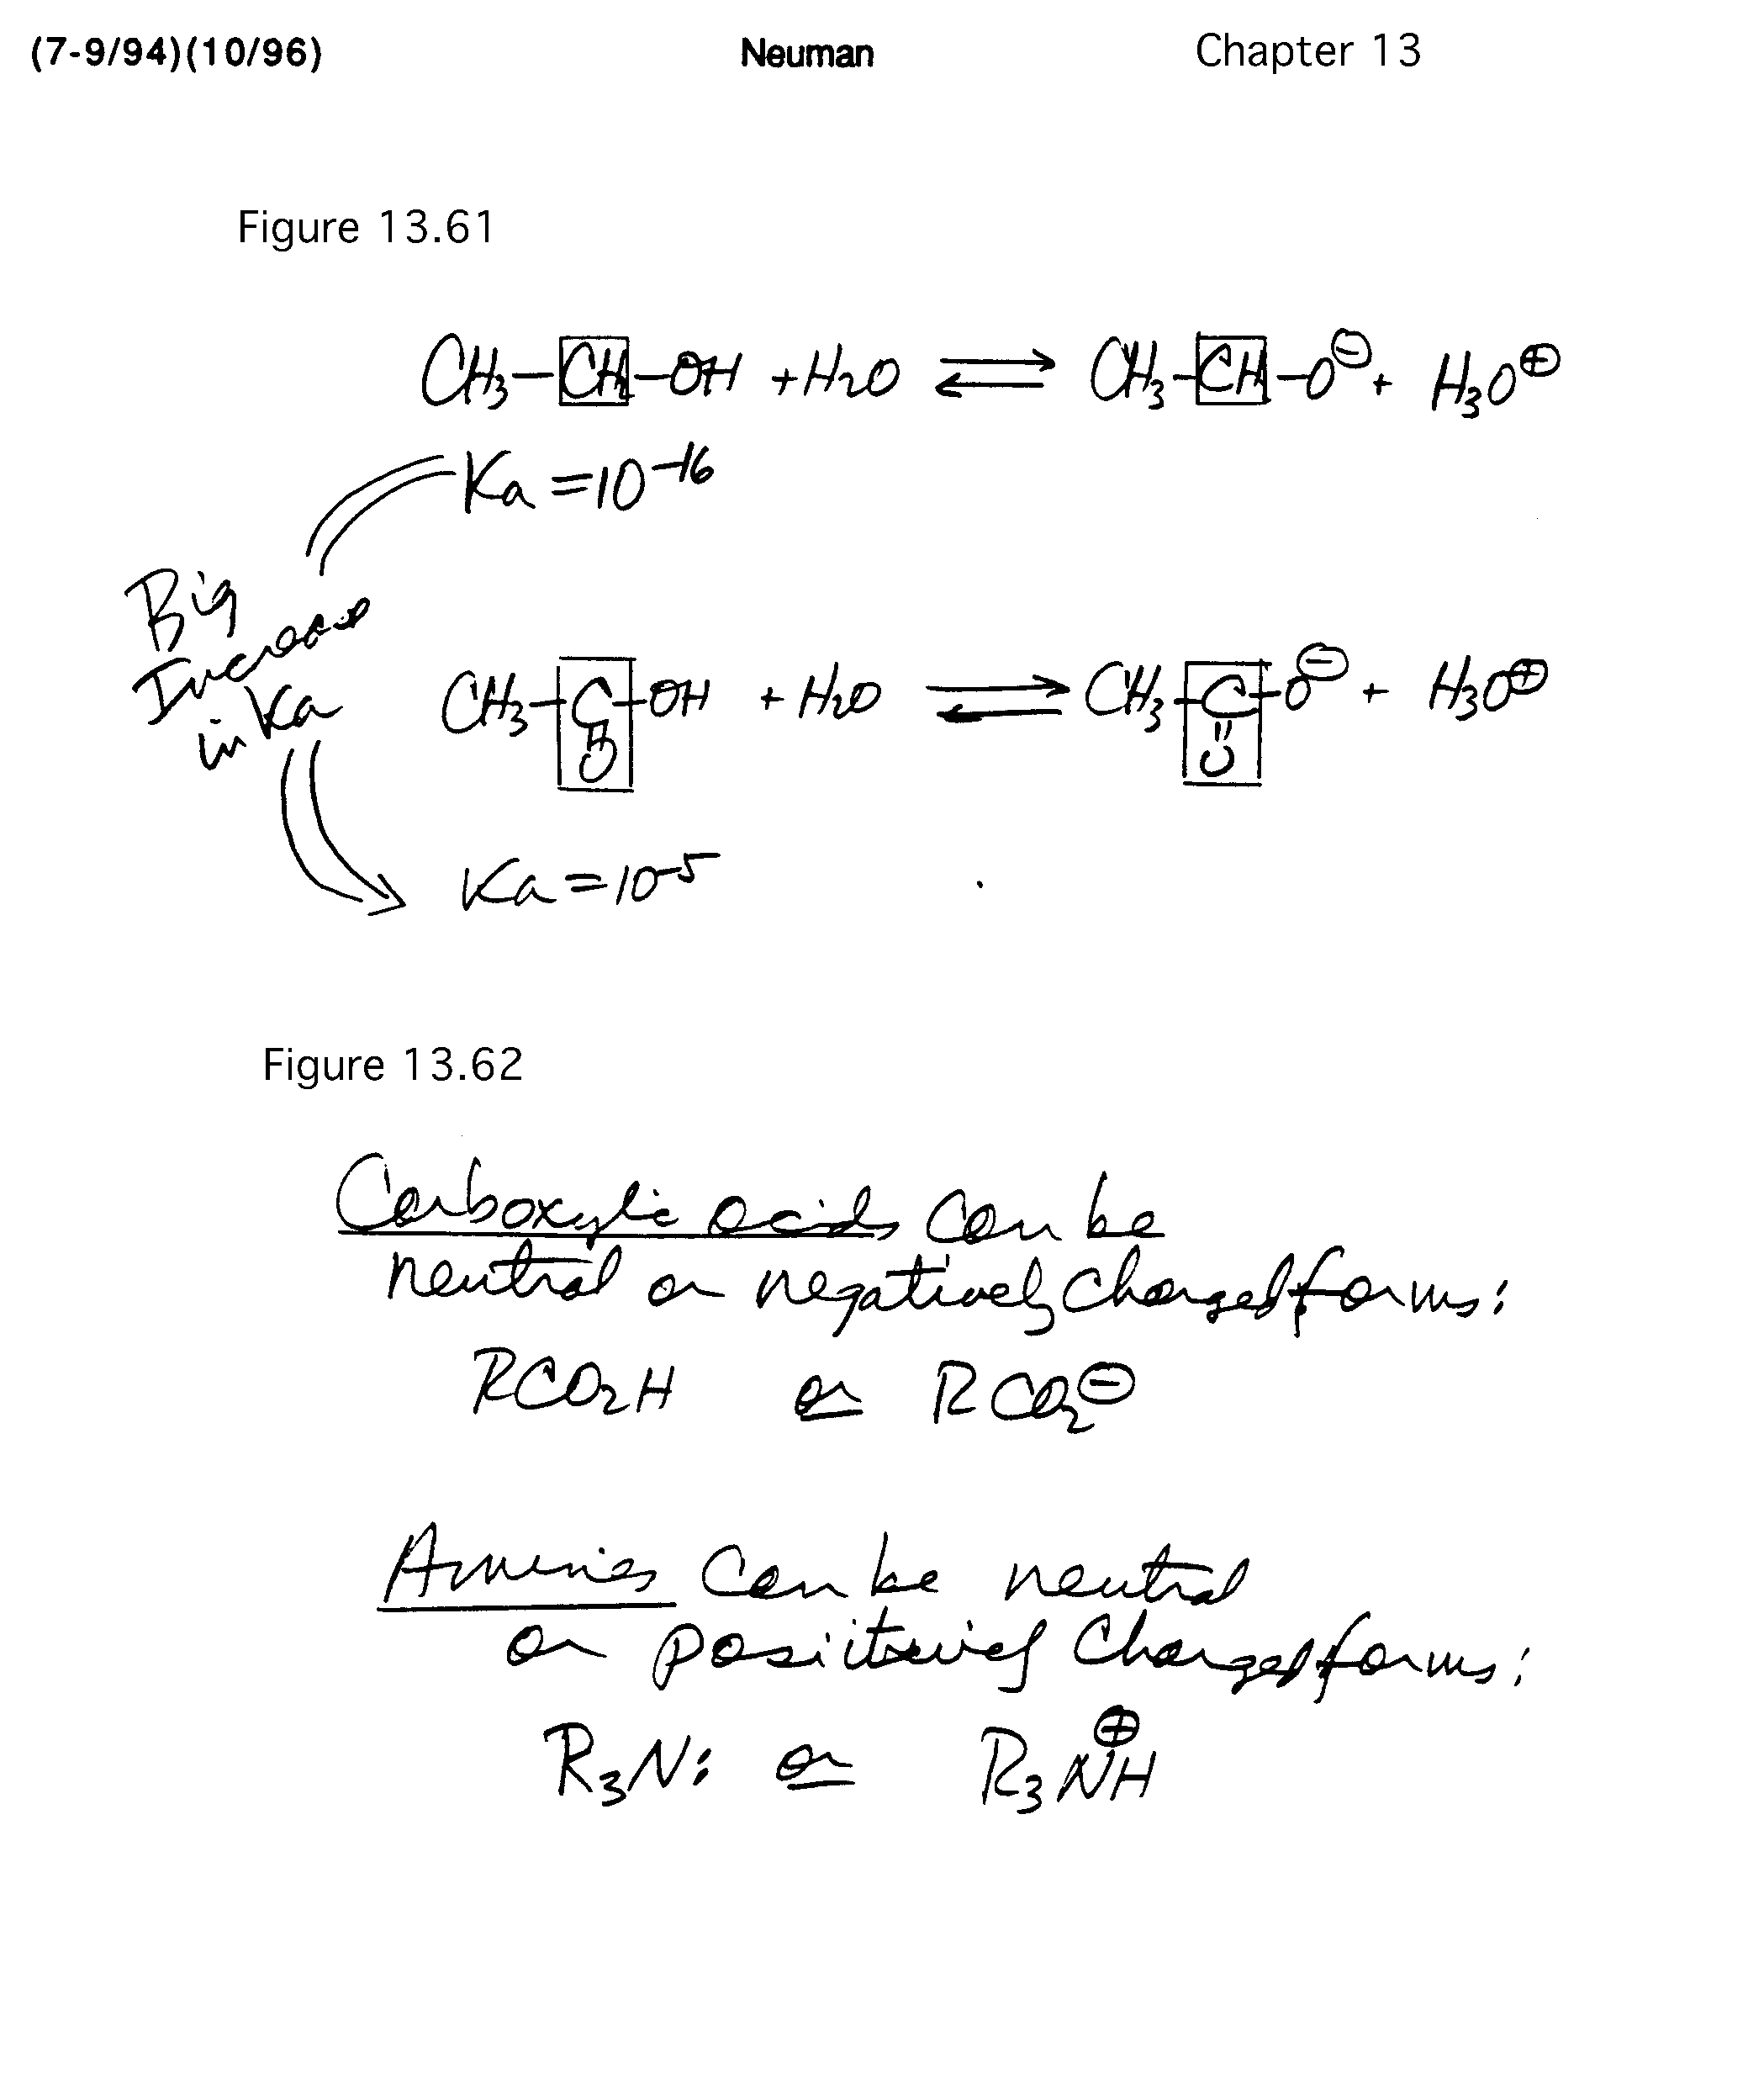 (7-9/94)(10/96) Neuman Chapter 13
Figure 13.61
CH₃–CH–OH + H₂O ⇌ CH₃–CH–O⊖ + H₃O⊕
Ka = 10⁻¹⁶
Big
Increase
in Ka
CH₃–C–OH + H₂O ⇌ CH₃–C–O⊖ + H₃O⊕
O O
Ka = 10⁻⁵
Figure 13.62
Carboxylic acids can be
neutral or negatively charged forms:
RCO₂H or RCO₂⊖
Amines can be neutral
or positively charged forms:
R₃N: or R₃NH⊕